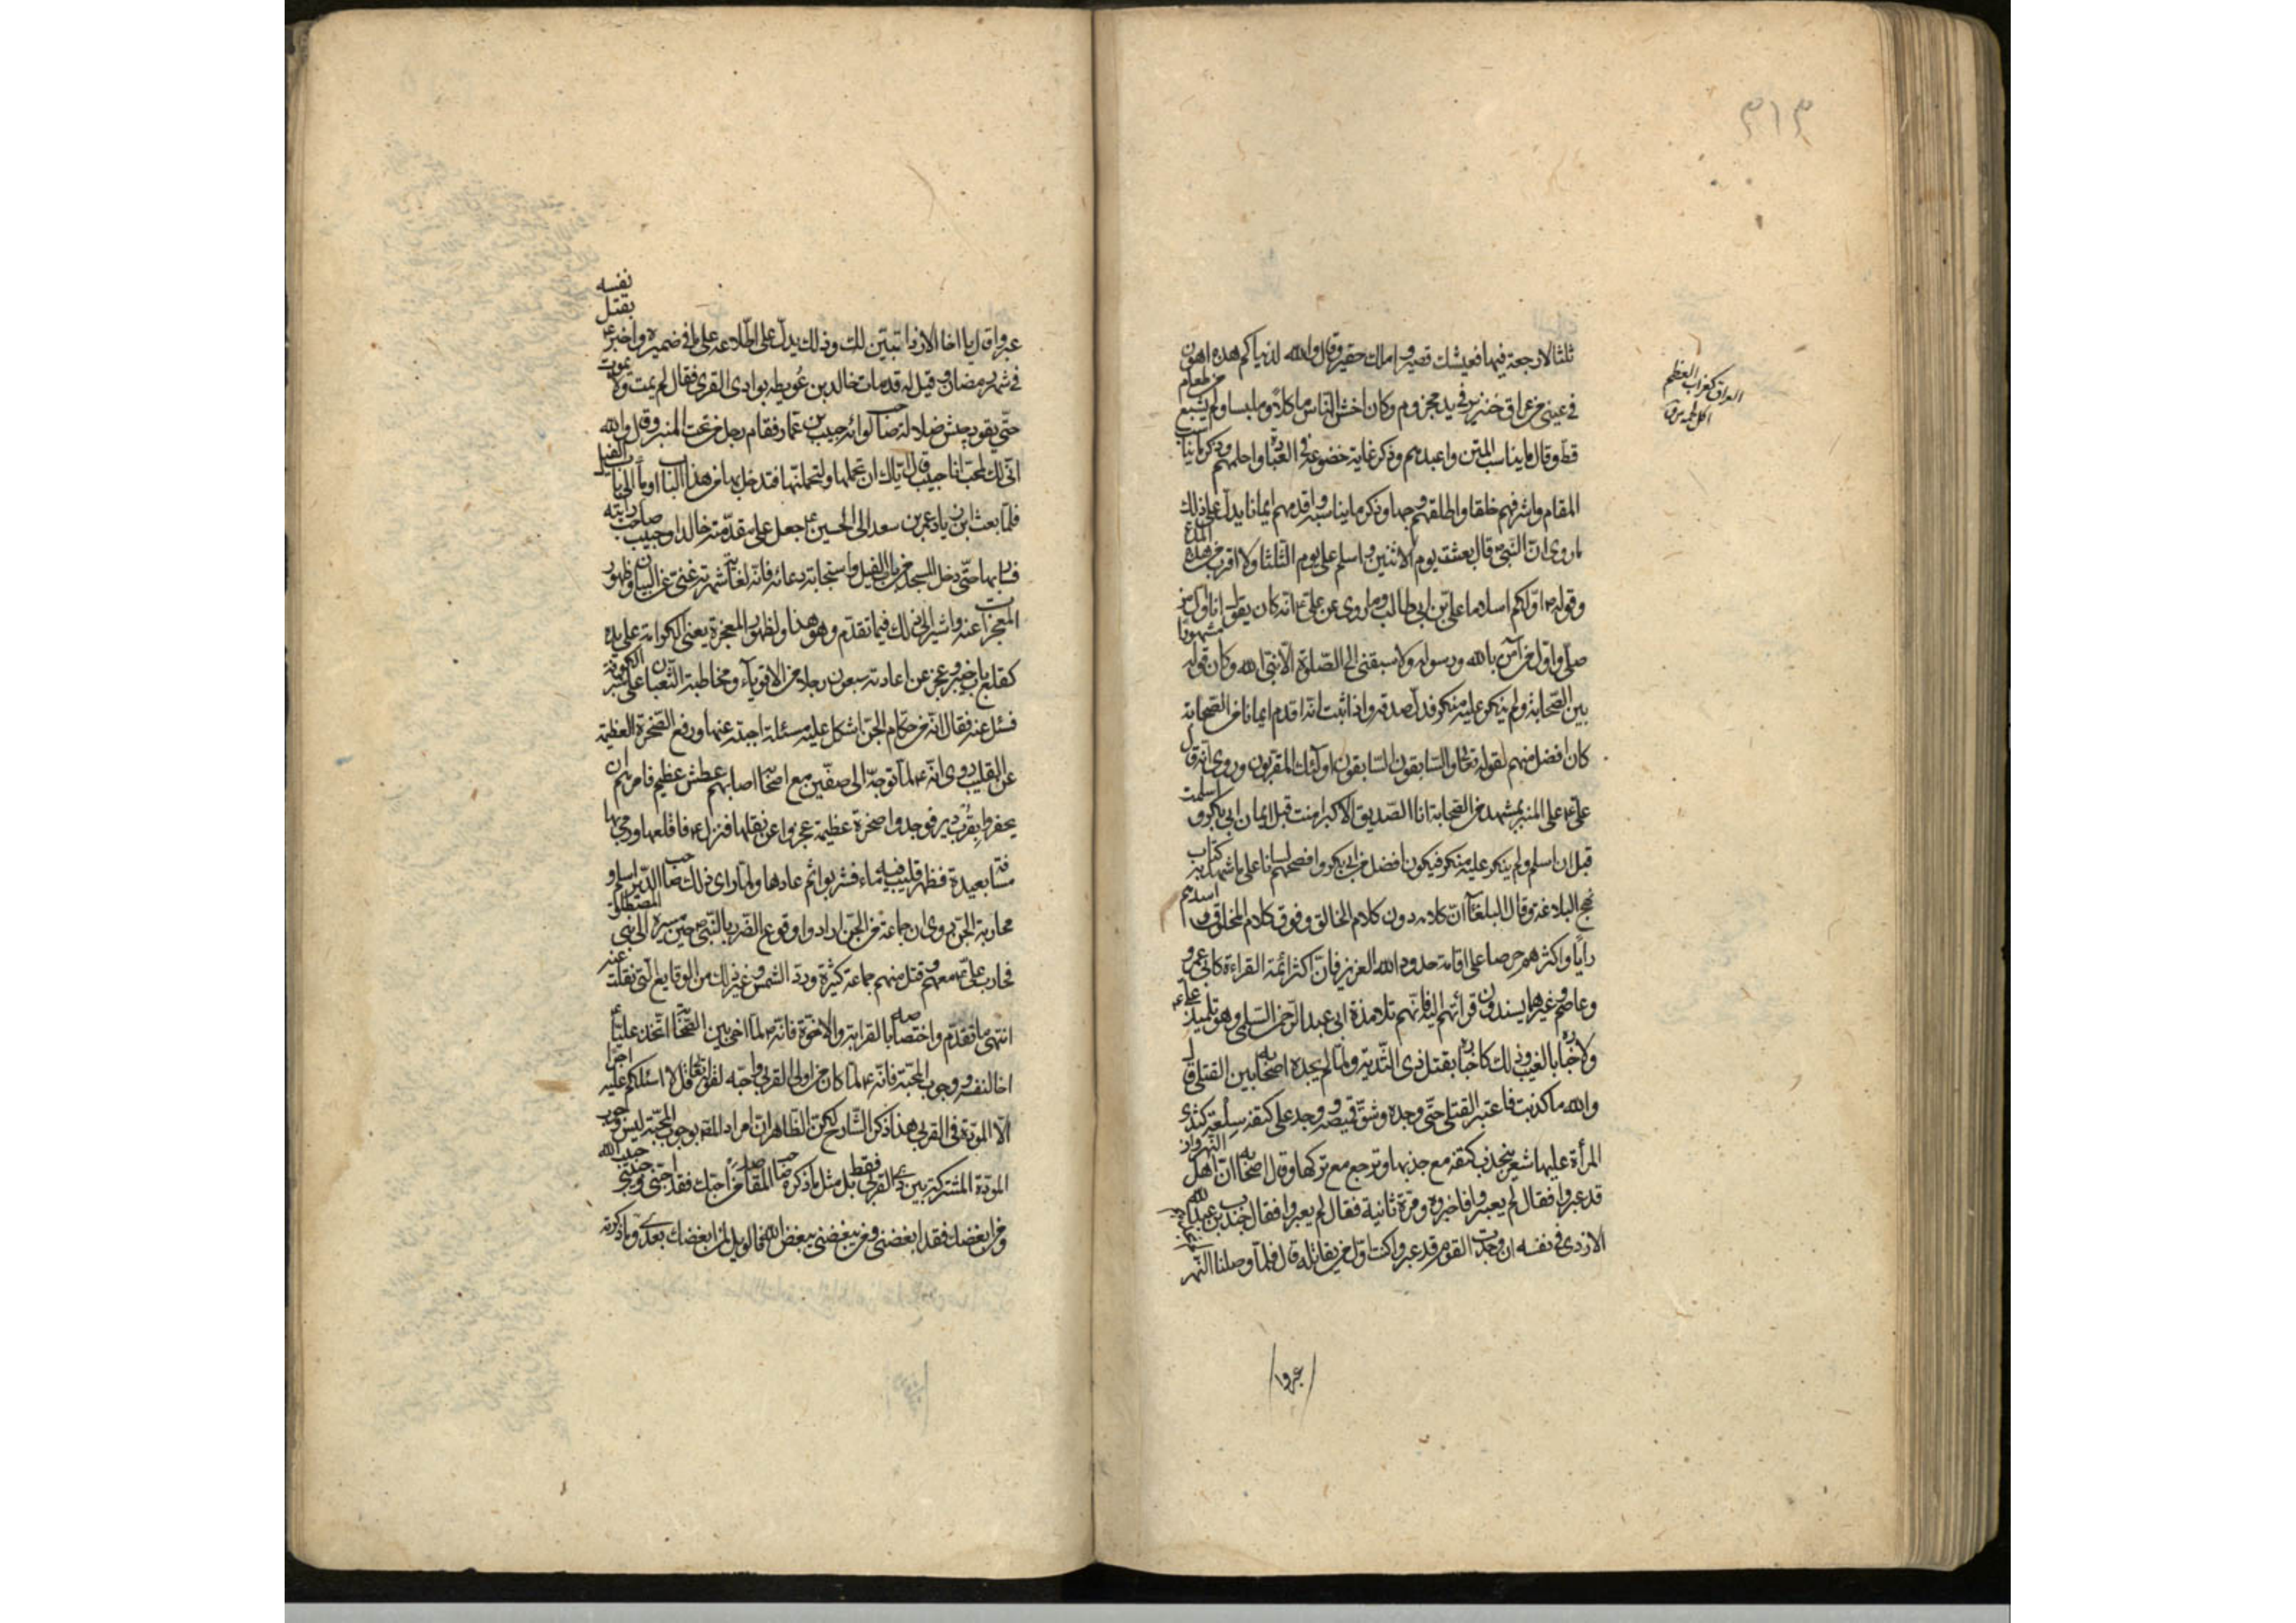 ٣١٣
ثلثا لا رجعة فيها فعيشك قصير واملك حقير وقال والله لدنياكم هذه اهون
في عيني من عراق خنزير في يد مجزوم وكان اخشن الناس ماكلا وملبسا ولم يشبع من طعام
قط وقال ما يناسب المتن واعبدهم وذكر غاية خضوعه في العبادة واحلمهم وذكر ما يناسب
المقام واشرفهم خلقا واطلقهم وجها وذكر ما يناسبه واقدمهم ايمانا يدل على ذلك
ما روى ان النبي قال بعثت يوم الاثنين واسلم على يوم الثلثا ولا اقرب من هذه المدة
وقوله اولكم اسلاما علي بن ابي طالب وما روى عن علي انه كان يقول انا اول من
صلى واول من آمن بالله ورسوله ولا سبقني الى الصلوة الا نبي الله وكان قوله مشهورا
بين الصحابة ولم ينكر عليه منكر فدل صدقه واذا ثبت انه اقدم ايمانا من الصحابة
كان افضل منهم لقوله تعالى والسابقون السابقون اولئك المقربون وروى انه قال
علي على المنبر بمشهد من الصحابة انا الصديق الاكبر امنت قبل ايمان ابي بكر واسلمت
قبل ان اسلم ولم ينكر عليه منكر فيكون افضل من ابي بكر وافصحهم لسانا على ما شهد به كتاب
نهج البلاغة وقال البلغاء ان كلامه دون كلام الخالق وفوق كلام المخلوق واسدهم
رايا واكثرهم حرصا على اقامة حدود الله العزيز فان اكثر ائمة القراءة كابي عمرو
وعاصم وغيرهما يسندون قرائتهم اليه فانهم تلامذة ابي عبد الرحمن السلمي وهو تلميذ علي
ولاخباره بالغيب وذلك كاخباره بقتل ذي الثدية ولما لم يجده اصحابه بين القتلى قال
والله ما كذبت فاعتبر القتلى حتى وجده وشق قميصه ووجد على كتفه سلعة كثدي
المرأة عليها شعر ينجذب كتفه مع جذبها وترجع مع تركها وقال اصحابه ان اهل النهروان
قد عبروا فقال لم يعبروا فاخبروه مرة ثانية فقال لم يعبروا فقال جندب بن عبد الله
الازدي في نفسه ان وجدت القوم قد عبروا كنت اول من يقاتله قال فلما وصلنا النهر
عبروا
العراق كغراب العظم
اكل لحمه
عبروا قال يا اخا الازد اتبين لك وذلك يدل على اطلاعه على ما في ضميره واخبر بقتل نفسه
في شهر رمضان وقيل له قد مات خالد بن عويطه بوادي القرى فقال لم يمت ولا يموت
حتى يقود جيش ضلالة صاحب لوائه حبيب بن عمار فقام رجل من تحت المنبر وقال والله
اني لك لمحب انا حبيب قال اياك ان تحملها ولتحملنها فتدخل بها من هذا الباب واومأ الى باب الفيل
فلما بعث ابن زياد عمر بن سعد الى الحسين جعل على مقدمته خالدا وحبيب صاحب رايته
فسار بها حتى دخل المسجد من باب الفيل واستجابة دعائه فانه لغاية شهرته غني عن البيان وظهور
المعجزات عنه واشير الى ذلك فيما تقدم وهو هذا ولظهور المعجزة يعني الكرامة على يده
كقلع باب خيبر وعجز عن اعادته سبعون رجلا من الاقوياء ومخاطبة الثعبان على منبر الكوفة
فسئل عنه فقال انه من حكام الجن اشكل عليه مسئلة اجبته عنها ورفع الصخرة العظيمة
عن القليب روى انه لما توجه الى صفين مع اصحابه اصابهم عطش عظيم فامرهم ان
يحفروا بقرب دير فوجدوا صخرة عظيمة عجزوا عن نقلها فنزل فاقلعها ورمى بها
مسافة بعيدة فظهر قليب فيه ماء فشربوا ثم عادها ولما رأى ذلك صاحب الدير اسلم و
محاربة الجن روى ان جماعة من الجن ارادوا وقوع الضرر بالنبي حين مسيره الى بني المصطلق
فحارب علي معهم وقتل منهم جماعة كثيرة ورد الشمس وغير ذلك من الوقايع التي نقلت عنه
انتهى ما تقدم واختصاصه بالقرابة والاخوة فانه لما اخى بين الصحابة اتخذ عليا
اخا لنفسه ووجوب المحبة فانه لما كان من اولي القربى واحبه لقوله تعالى قل لا اسئلكم عليه اجرا
الا المودة في القربى هذا ذكر الشارح لكن الظاهر ان مراد المقر بوجوب المحبة ليس وجوب
المودة المشتركة بين ذوي القربى فقط بل مثل ما ذكره صاحب المقاصد من احبك فقد احبني وحبيبي حبيب الله
ومن ابغضك فقد ابغضني ومن يبغضني يبغض الله فالويل لمن ابغضك بعدي وما ذكرته